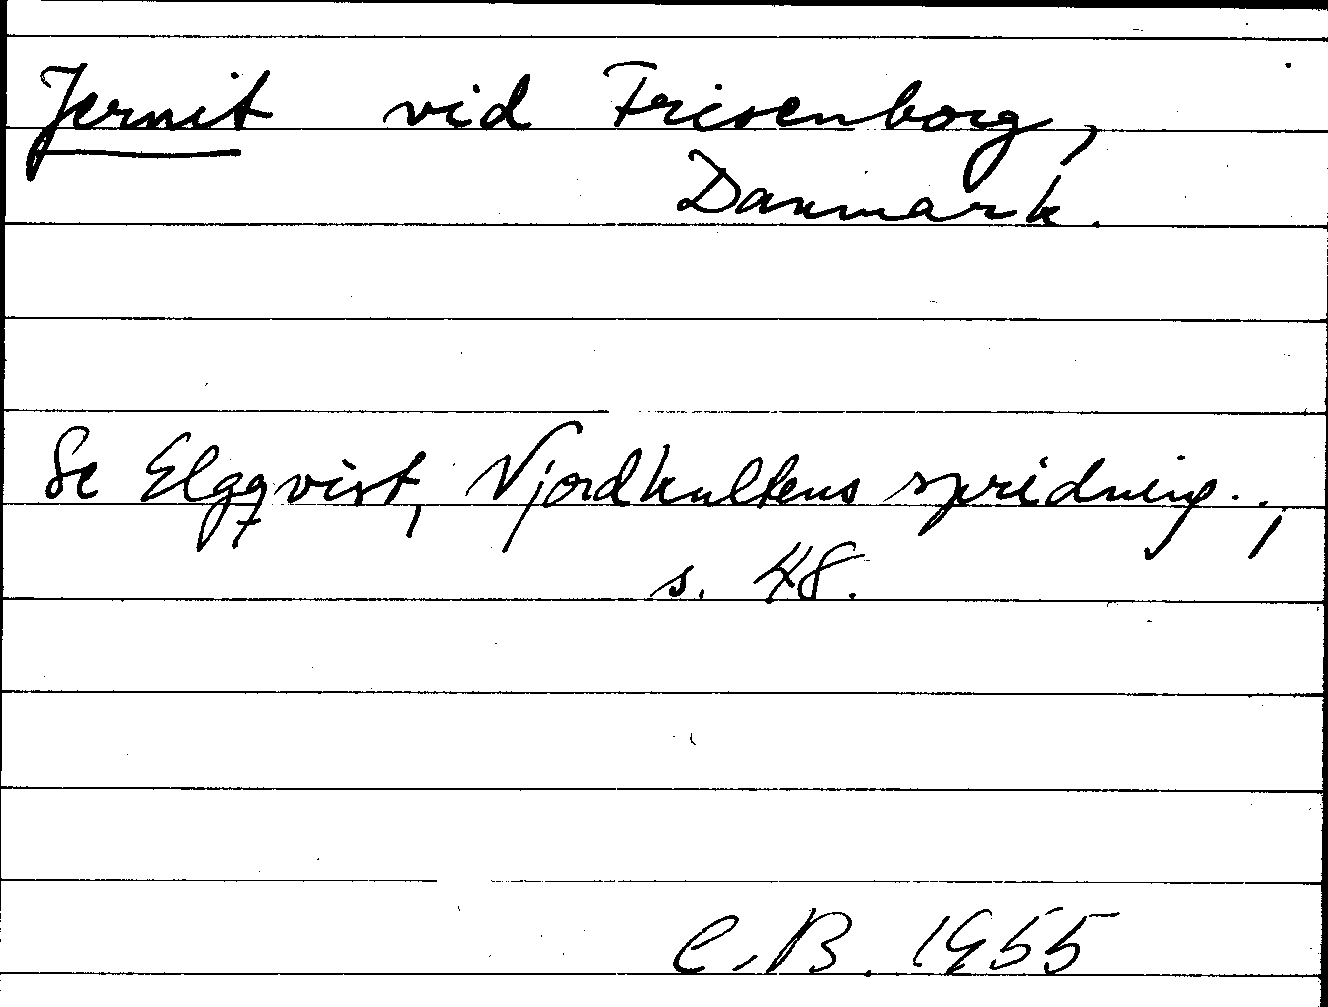 Jernit vid Frisenborg,
Danmark.
Se Elgqvist, Njordkultens spridning..,
s. 48.
C.B. 1955